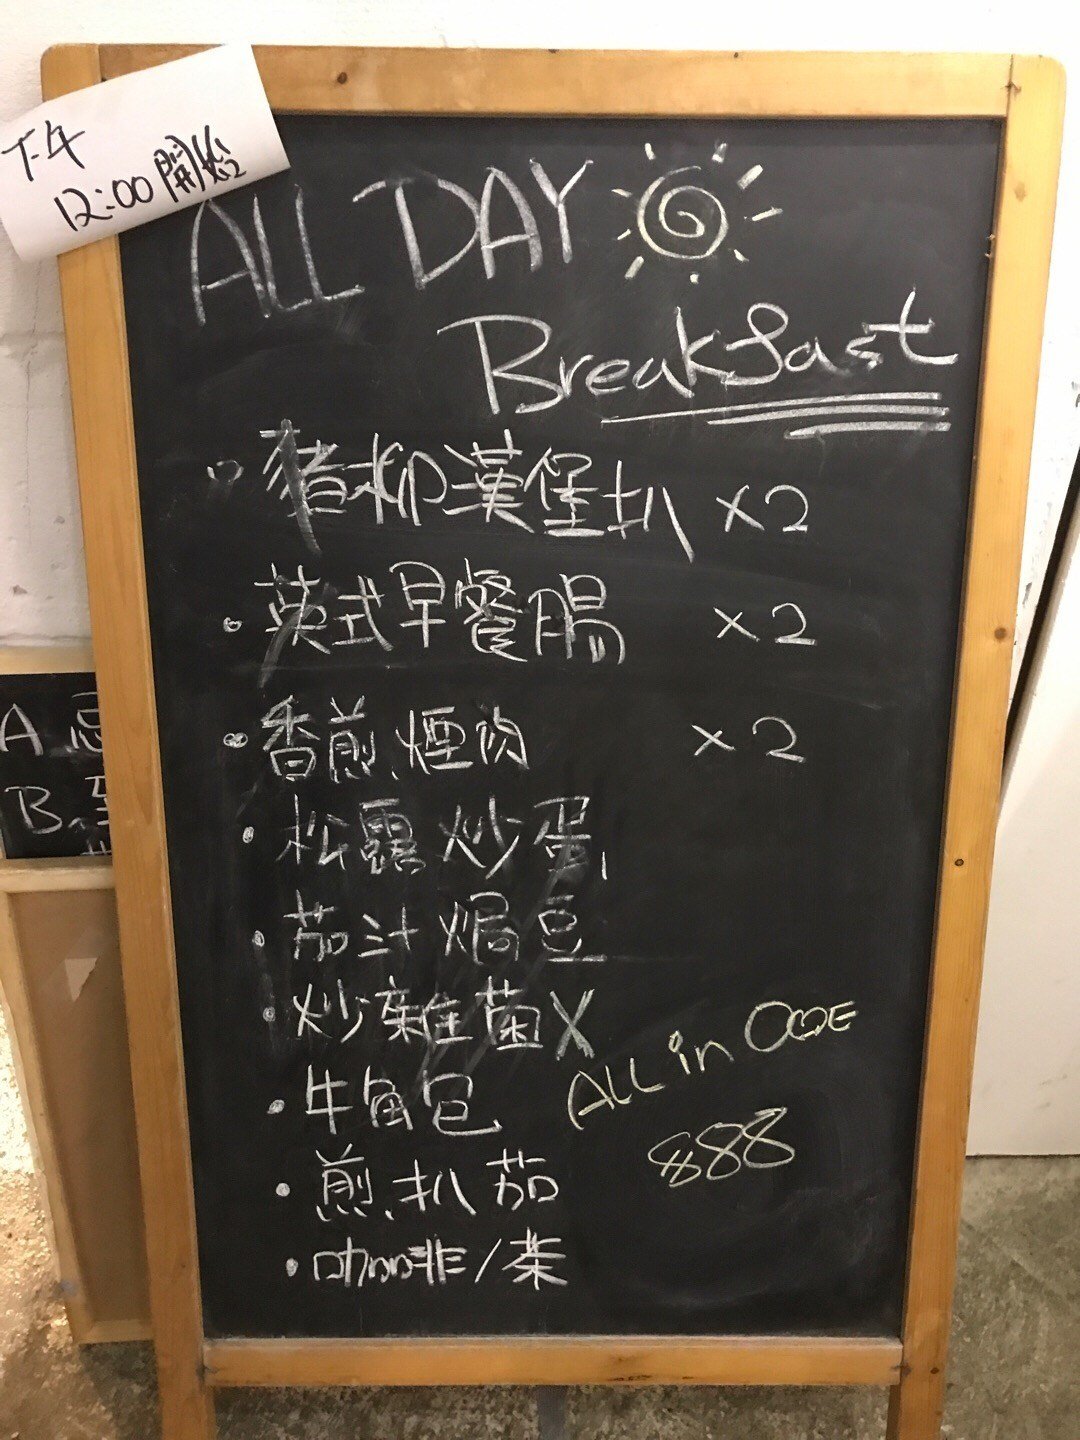 下午
12:00 開始
ALL DAY
Breakfast
豬柳漢堡扒 x2
英式早餐腸 x2
香煎煙肉 x2
松露炒蛋
茄汁焗豆
炒雜菌X
牛角包
煎扒茄
咖啡/茶
ALL in ONE
$88
A
B.